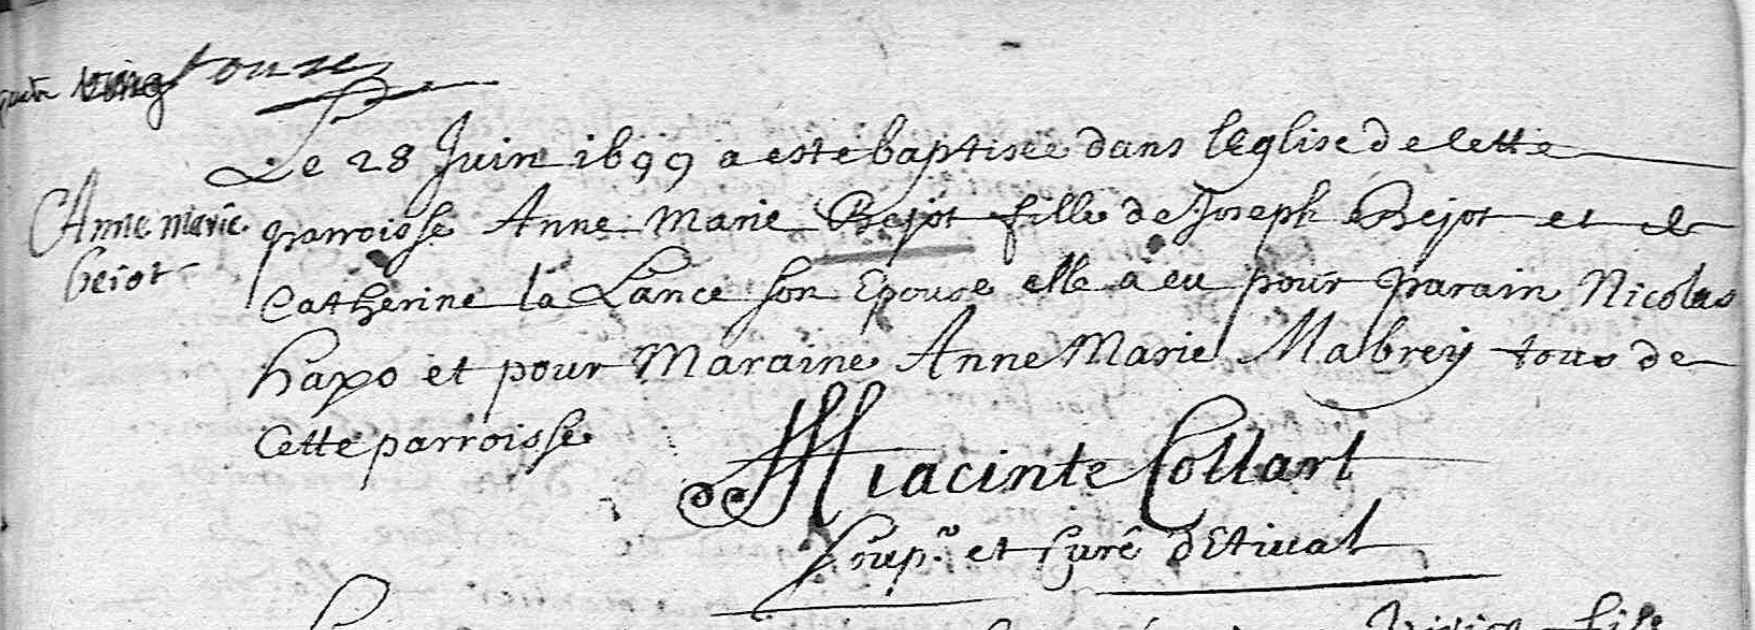 vingt onze
Le 28 Juin 1699 a este baptisée dans lEglise de Cette
Anne marie
parroisse Anne Marie Bejot fille de Joseph Bejot et de
beiot
Catherine la Lance son Epouse elle a eu pour parain Nicolas
haxo et pour Maraine Anne Marie Mabrey tous de
Cette parroisse
Hiacinte Collart
Soupr et Curé dEtival
fils